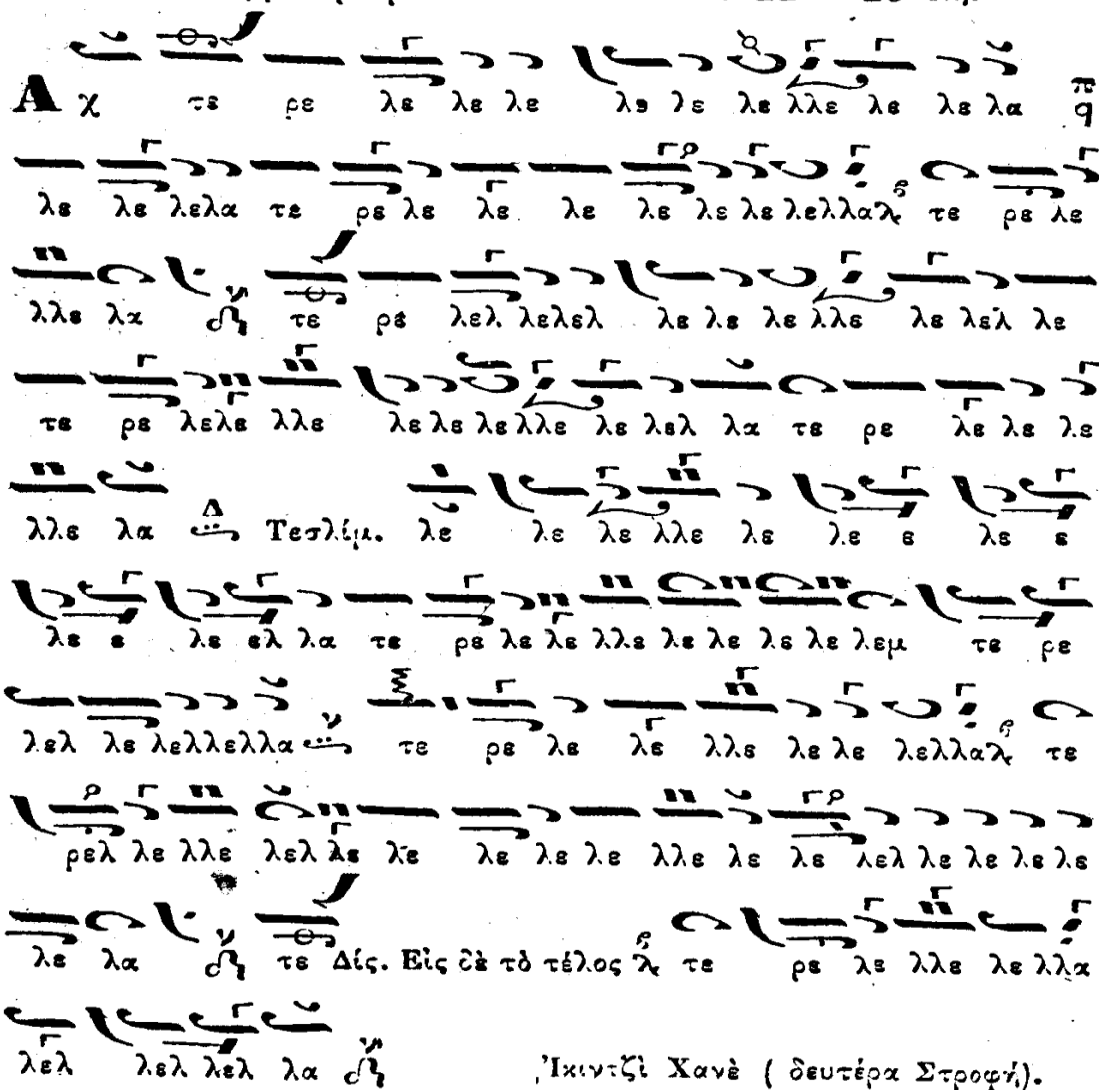 Α χ τε ρε λε λε λε λε λε λε λλε λε λε λα π q
λε λε λελα τε ρε λε λε λε λε λε λε λελλαλ τε ρε λε
λλε λα τε ρε λελ λελελ λε λε λε λλε λε λελ λε
τε ρε λελε λλε λε λε λε λλε λε λελ λα τε ρε λε λε λε
λλε λα Δ Τεσλίμ. λε λε λε λλε λε λε ε λε ε
λε ε λε ελ λα τε ρε λε λε λλε λε λε λε λε λεμ τε ρε
λελ λε λελλελλα ν τε ρε λε λε λλε λε λε λελλαλ τε
ρελ λε λλε λελ λε λε λε λε λε λλε λε λε λελ λε λε λε λε
λε λα ν τε Δίς. Εἰς δὲ τὸ τέλος τε ρε λε λλε λε λλα
λελ λελ λελ λα ν Ἰκιντζὶ Χανὲ ( δευτέρα Στροφή).